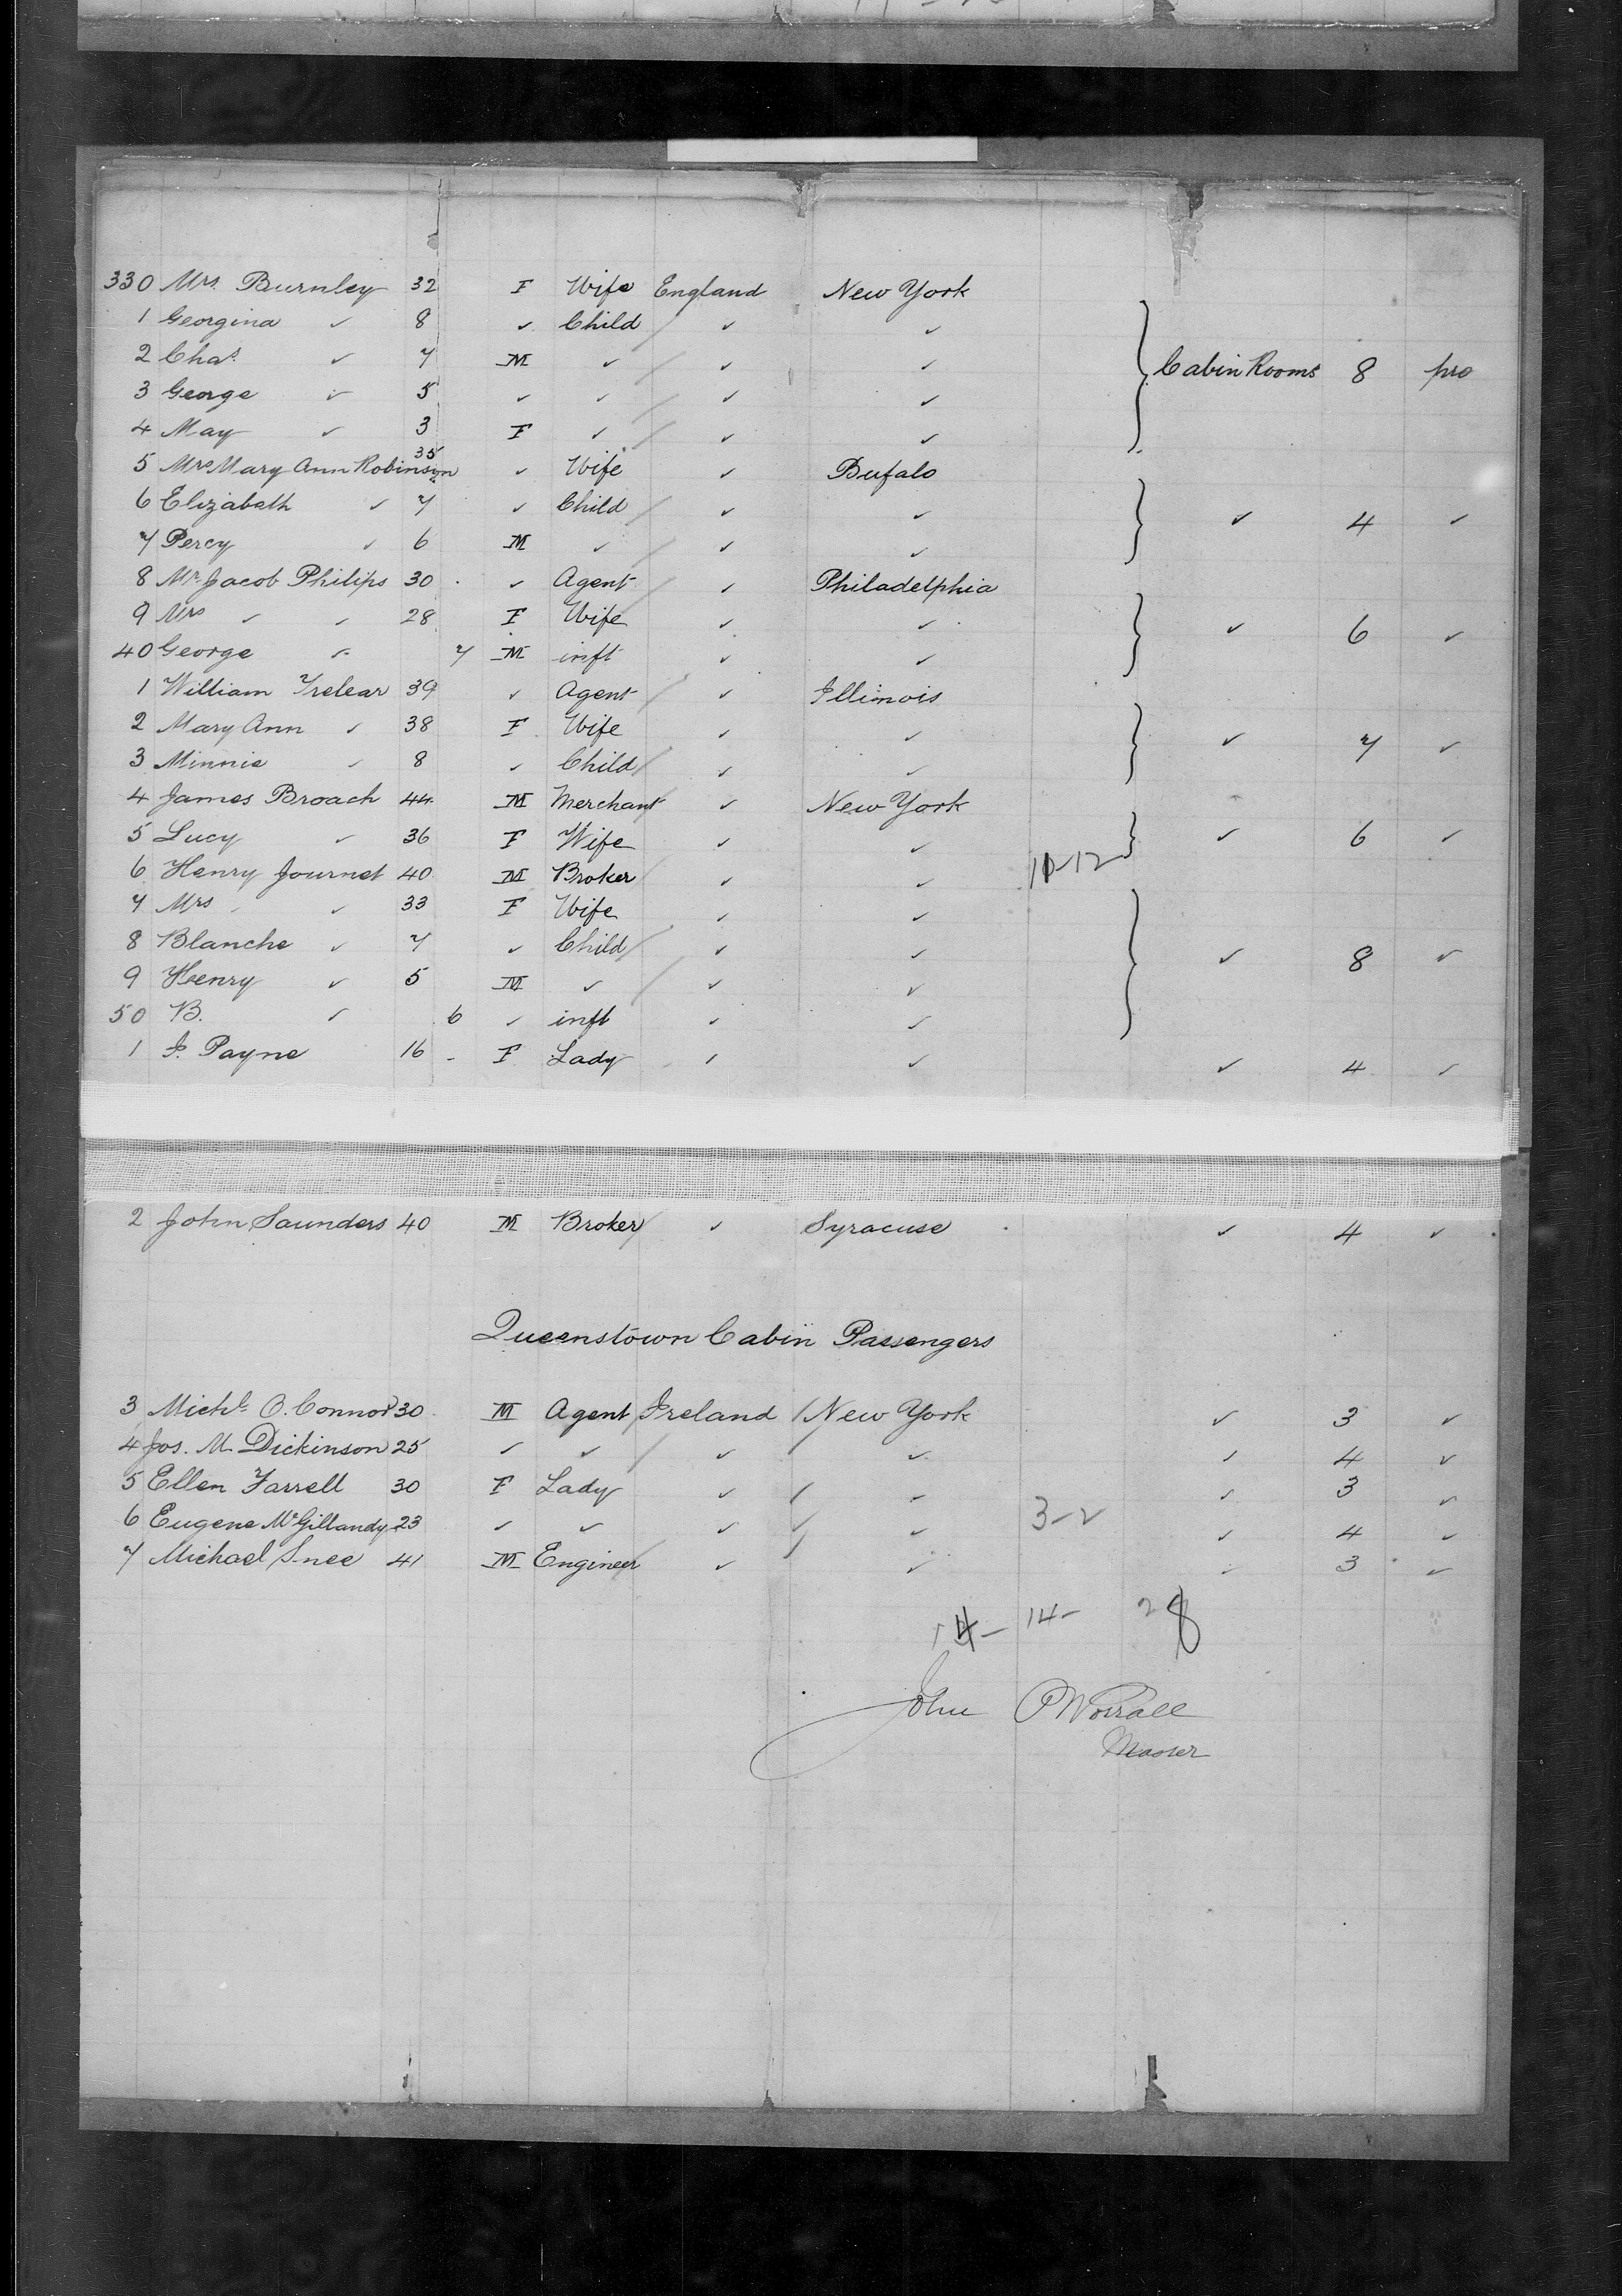 330 Mrs. Burnley 32 F Wife England New York
1 Georgina ✓ 8 ✓ Child ✓ ✓
2 Chas. ✓ 7 M ✓ ✓ ✓ Cabin Rooms 8 pro
3 George ✓ 5 ✓ ✓ ✓ ✓
4 May ✓ 3 F ✓ ✓ ✓
5 Mrs Mary Ann Robinson 35 ✓ Wife ✓ Bufalo
6 Elizabeth ✓ 7 ✓ Child ✓ ✓ ✓ 4 ✓
7 Percy ✓ 6 M ✓ ✓ ✓
8 Mr. Jacob Philips 30 ✓ Agent ✓ Philadelphia
9 Mrs ✓ ✓ 28 F Wife ✓ ✓ ✓ 6 ✓
40 George ✓ 7 M inft ✓ ✓
1 William Trelear 39 ✓ Agent ✓ Illinois
2 Mary Ann ✓ 38 F Wife ✓ ✓ ✓ 7 ✓
3 Minnie ✓ 8 ✓ Child ✓ ✓
4 James Broach 44 M Merchant ✓ New York
5 Lucy ✓ 36 F Wife ✓ ✓ ✓ 6 ✓
6 Henry Journet 40 M Broker ✓ ✓ 10-12
7 Mrs ✓ 33 F Wife ✓ ✓
8 Blanche ✓ 7 ✓ Child ✓ ✓ ✓ 8 ✓
9 Henry ✓ 5 M ✓ ✓ ✓
50 B. ✓ 6 ✓ inft ✓ ✓
1 J. Payne 16 - F Lady ✓ ✓ ✓ 4 ✓
2 John Saunders 40 M Broker ✓ Syracuse ✓ 4 ✓
Queenstown Cabin Passengers
3 Michl. O. Connor 30 M Agent Ireland New York ✓ 3 ✓
4 Jos. M. Dickinson 25 ✓ ✓ ✓ ✓ ✓ 4 ✓
5 Ellen Farrell 30 F Lady ✓ ✓ ✓ 3 ✓
6 Eugene McGillandy 23 ✓ ✓ ✓ ✓ 3-2 ✓ 4 ✓
7 Michael Snee 41 M Engineer ✓ ✓ ✓ 3 ✓
14- 14- 28
John P Worrall
Master